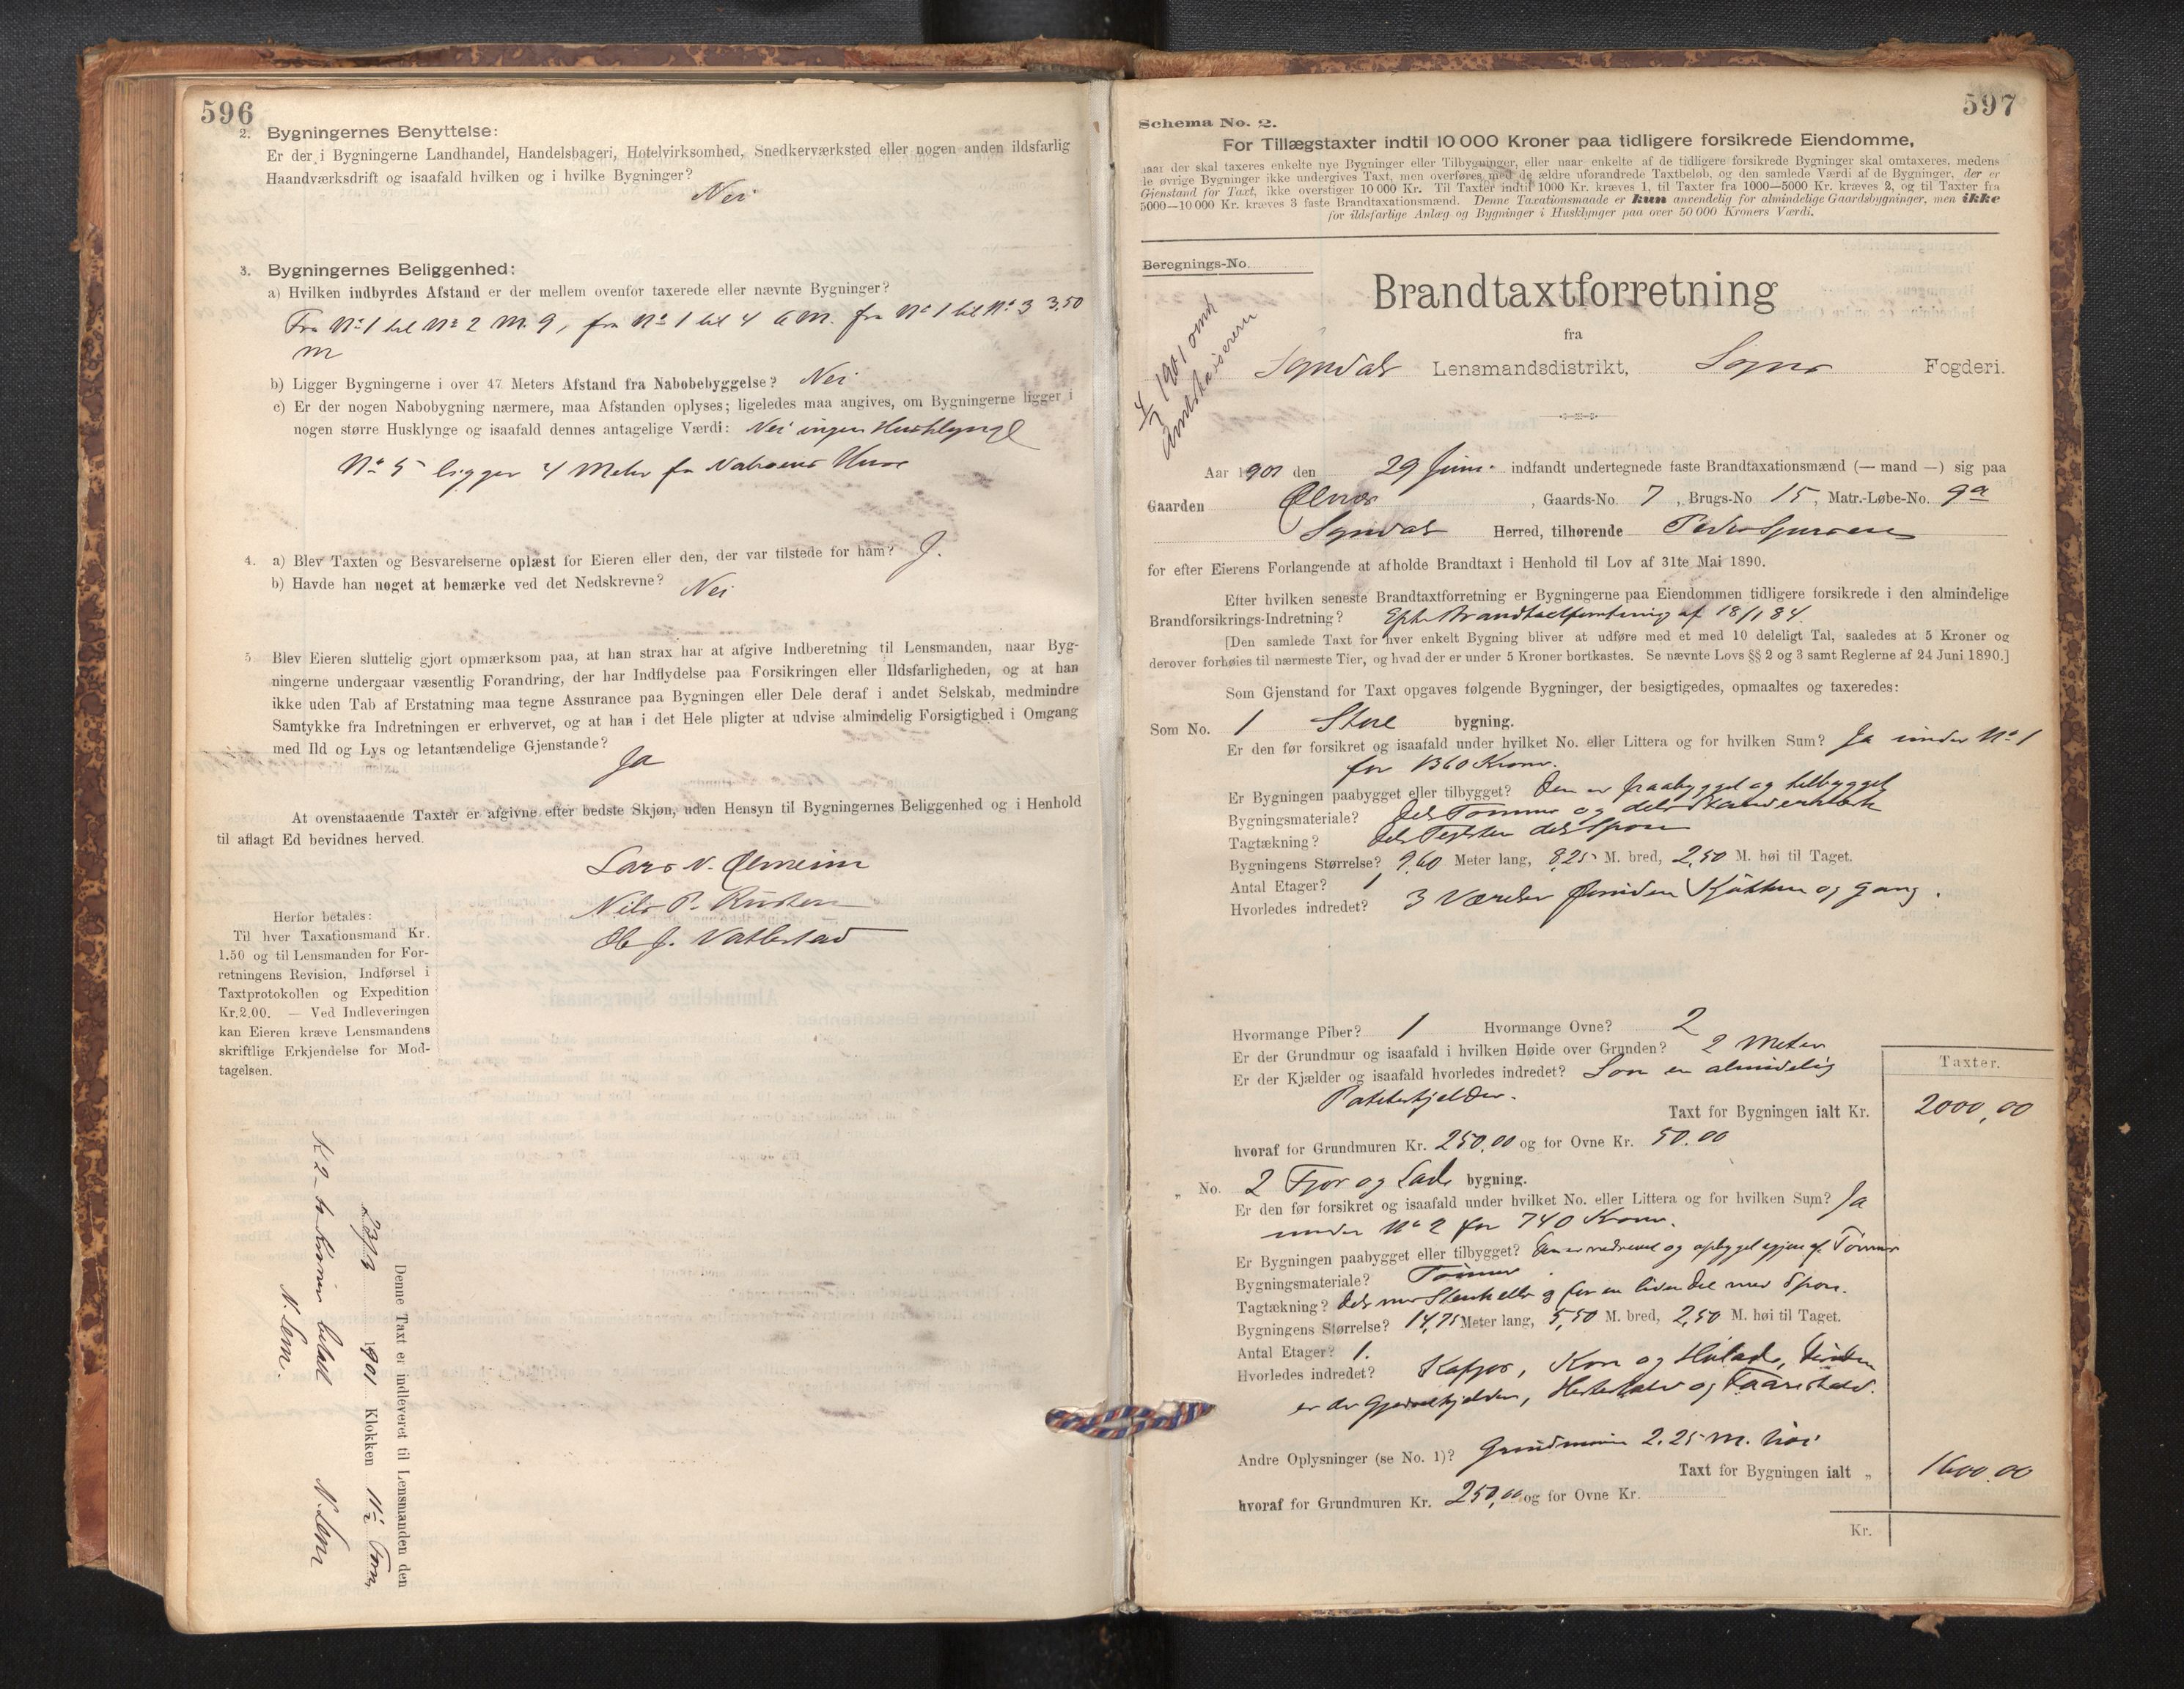 596
2. Bygningernes Benyttelse:
Er der i Bygningerne Landhandel, Handelsbageri, Hotelvirksomhed, Snedkerværksted eller nogen anden ildsfarlig
Haandværksdrift og isaafald hvilken og i hvilke Bygninger?
Nei
3. Bygningernes Beliggenhed:
a) Hvilken indbyrdes Afstand er der mellem ovenfor taxerede eller nævnte Bygninger?
Fra No 1 til No 2 M. 9, fra No 1 til 4 6 M. fra No 1 til No 3 3,50
m
b) Ligger Bygningerne i over 47 Meters Afstand fra Nabobebyggelse? Nei
c) Er der nogen Nabobygning nærmere, maa Afstanden oplyses; ligeledes maa angives, om Bygningerne ligger i
nogen større Husklynge og isaafald dennes antagelige Værdi: Nei ingen Husklynge
No 5 ligger 4 Meter fra Naboens Huse
4. a) Blev Taxten og Besvarelserne oplæst for Eieren eller den, der var tilstede for ham? J.
b) Havde han noget at bemærke ved det Nedskrevne? Nei
5 Blev Eieren sluttelig gjort opmærksom paa, at han strax har at afgive Indberetning til Lensmanden, naar Byg-
ningerne undergaar væsentlig Forandring, der har Indflydelse paa Forsikringen eller Ildsfarligheden, og at han
ikke uden Tab af Erstatning maa tegne Assurance paa Bygningen eller Dele deraf i andet Selskab, medmindre
Samtykke fra Indretningen er erhvervet, og at han i det Hele pligter at udvise almindelig Forsigtighed i Omgang
med Ild og Lys og letantændelige Gjenstande?
Ja
At ovenstaaende Taxter er afgivne efter bedste Skjøn, uden Hensyn til Bygningernes Beliggenhed og i Henhold
til aflagt Ed bevidnes herved.
Lars N.
Nils P.
Ole J.
Herfor betales:
Til hver Taxationsmand Kr.
1.50 og til Lensmanden for For-
retningens Revision, Indførsel i
Taxtprotokollen og Expedition
Kr. 2.00. — Ved Indleveringen
kan Eieren kræve Lensmandens
skriftlige Erkjendelse for Mod-
tagelsen.
Denne Taxt er indleveret til Lensmanden den
1901 Klokken 11½ Form
N. Lem
K 2 – to Kroner betalt
N. Lem
597
Schema No. 2.
For Tillægstaxter indtil 10 000 Kroner paa tidligere forsikrede Eiendomme,
naar der skal taxeres enkelte nye Bygninger eller Tilbygninger, eller naar enkelte af de tidligere forsikrede Bygninger skal omtaxeres, medens
de øvrige Bygninger ikke undergives Taxt, men overføres med de ældre uforandrede Taxtbeløb, og den samlede Værdi af de Bygninger, der er
Gjenstand for Taxt, ikke overstiger 10 000 Kr. Til Taxter indtil 1000 Kr. kræves 1, til Taxter fra 1000—5000 Kr. kræves 2, og til Taxter fra
5000—10 000 Kr. kræves 3 faste Brandtaxationsmænd. Denne Taxationsmaade er kun anvendelig for almindelige Gaardsbygninger, men ikke
for ildsfarlige Anlæg og Bygninger i Husklynger paa over 50 000 Kroners Værdi.
Beregnings-No.
4/7 1901
Brandtaxtforretning
fra
Lyndals Lensmandsdistrikt, Sogns Fogderi.
Aar 1901 den 29 Juni indfandt undertegnede faste Brandtaxationsmænd (— mand —) sig paa
Gaarden , Gaards-No. 7, Brugs-No 15, Matr.-Løbe-No. 9a
Herred, tilhørende
for efter Eierens Forlangende at afholde Brandtaxt i Henhold til Lov af 31te Mai 1890.
Efter hvilken seneste Brandtaxtforretning er Bygningerne paa Eiendommen tidligere forsikrede i den almindelige
Brandforsikrings-Indretning? Efter Brandtaxtforretning af 18/1 84.
[Den samlede Taxt for hver enkelt Bygning bliver at udføre med et med 10 deleligt Tal, saaledes at 5 Kroner og
derover forhøies til nærmeste Tier, og hvad der er under 5 Kroner bortkastes. Se nævnte Lovs §§ 2 og 3 samt Reglerne af 24 Juni 1890.]
Som Gjenstand for Taxt opgaves følgende Bygninger, der besigtigedes, opmaaltes og taxeredes:
Som No. 1 Stue bygning.
Er den før forsikret og isaafald under hvilket No. eller Littera og for hvilken Sum? Ja under No 1
for 1360 Kroner.
Er Bygningen paabygget eller tilbygget? Den er paabygget og tilbygget
Bygningsmateriale? Dels Tømmer og dels Stavverk
Tagtækning? Dels Teglsten dels Spon
Bygningens Størrelse? 9,60 Meter lang, 8,25 M. bred, 2,50 M. høi til Taget.
Antal Etager? 1
Hvorledes indredet? 3 Værelser foruden Kjøkken og Gang.
Hvormange Piber? 1 Hvormange Ovne? 2
Er der Grundmur og isaafald i hvilken Høide over Grunden? 2 Meter
Er der Kjælder og isaafald hvorledes indredet? Som en almindelig
Potetkjelder.
Taxter.
Taxt for Bygningen ialt Kr. 2000,00
hvoraf for Grundmuren Kr. 250,00 og for Ovne Kr. 50.00
„ No. 2 Fjøs og Lade bygning.
Er den før forsikret og isaafald under hvilket No. eller Littera og for hvilken Sum? Ja
under No 2 for 740 Kroner.
Er Bygningen paabygget eller tilbygget? Den er nedrevet og opbygget igjen af Tømmer
Bygningsmateriale? Tømmer
Tagtækning? Dels med Stenheller og for en liden Del med Spon.
Bygningens Størrelse? 14,75 Meter lang, 5,50 M. bred, 2,50 M. høi til Taget.
Antal Etager? 1.
Hvorledes indredet? Kofjøs, Korn og Hølade,
er der Gjødselkjelder, Hestestald og Faarestald.
Andre Oplysninger (se No. 1)? Grundmuren 2.25 M. høi
Taxt for Bygningen ialt „ 1600.00
hvoraf for Grundmuren Kr. 250,00 og for Ovne Kr.
Kr.